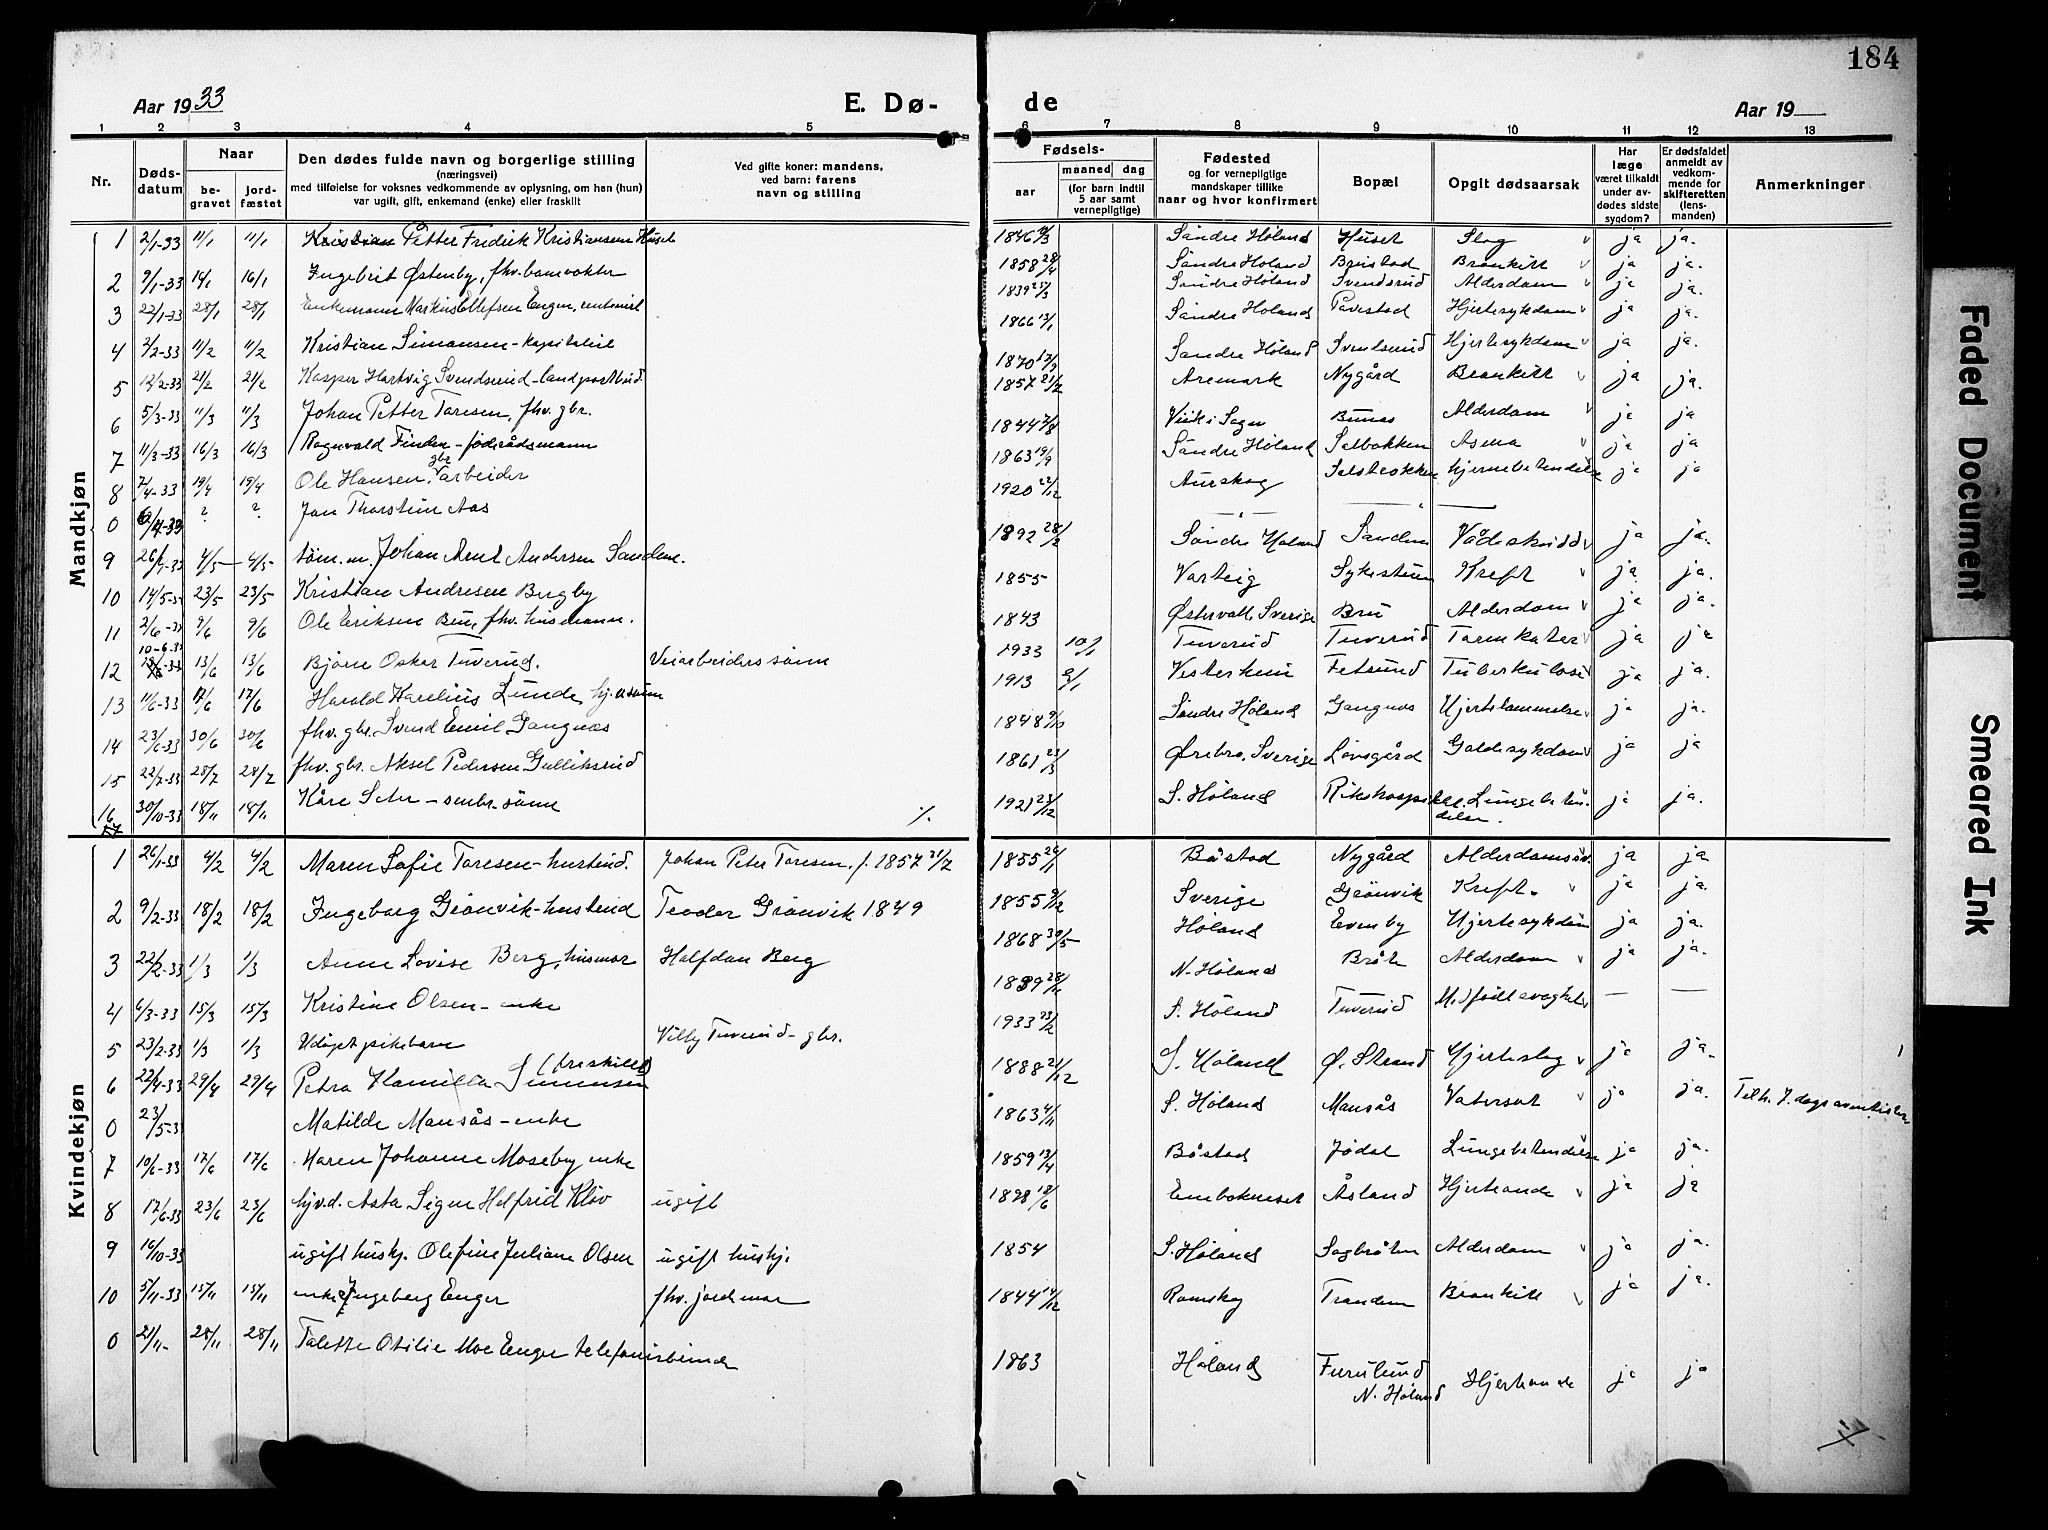 184
Aar 1933
E. Dø-
de
Aar 19
1 2 3 4 5 6 7 8 9 10 11 12 13
Nr.
Døds-
datum
Naar
be-
gravet
jord-
fæstet
Den dødes fulde navn og borgerlige stilling
(næringsvei)
med tilføielse for voksnes vedkommende av oplysning, om han (hun)
var ugift, gift, enkemand (enke) eller fraskilt
Ved gifte koner: mandens,
ved barn: farens
navn og stilling
Fødsels-
aar
maaned dag
(for barn indtil
5 aar samt
vernepligtige)
Fødested
og for vernepligtige
mandskaper tillike
naar og hvor konfirmert
Bopæl
Opgit dødsaarsak
Har
læge
været tilkaldt
under av-
dødes sidste
sygdom?
Er dødsfaldet
anmeldt av
vedkom-
mende for
skifteretten
(lens-
manden)
Anmerkninger
Mandkjøn
1 2/1-33 11/1 11/1 Kristian Petter Fredrik Kristiansen Huset 1846 Søndre Høland Huset Slag ja ja.
2 9/1-33 14/1 16/1 Ingebrit Østenby, fhv. banevokter 1858 28/4 Søndre Høland Brustad Bronkitt ja ja.
3 22/1-33 28/1 28/1 Enkemann Markus Ellefsen Enger, 1839 25/3 Søndre Høland Svendsrud Alderdom ja ja.
4 2/2-33 11/2 11/2 Kristian Simonsen - kapiteleie 1866 13/1 Søndre Høland Hjertesykdom ja ja.
5 13/2-33 21/2 21/2 Kasper Hartvig Svendserud - landpostbud 1870 17/9 Søndre Høland Svendserud Hjertesykdom ja ja.
6 5/3-33 11/3 11/3 Johan Petter Toresen, fhv. gbr. 1857 21/2 Aremark Nygård Bronkitt ja ja.
7 11/3-33 16/3 16/3 Ragnvald Finden - føderådsmann 1844 7/8 Vik i Sogn Bunes Alderdom ja ja
8 7/4-33 19/4 19/4 Ole Hansen, gbr. arbeider 1863 19/9 Søndre Høland Selbakken Asma ja ja
0 /4-33 ? ? Jan Thorstein Aas 1920 22/12 Aurskog hjernebetendelse ja ja
9 26/4-33 4/5 4/5 tøm.m. Johan Arnt Andersen Sandem. 1892 28/2 Søndre Høland Sandem Vådeskudd ja ja.
10 14/5-33 23/5 23/5 Kristian Andresen Bergby 1855 Varteig Sykestuen Kreft ja ja.
11 2/6-33 9/6 9/6 Ole Eriksen Bru, fhv. husmann. 1843 Østervall. Sverige Bru Alderdom ja ja.
10-6-33
12 13/6 13/6 Bjørn Oskar Tuverud. Veiarbeiders sønn 1933 10/1 Tuverud Tuverud Tarmkatar ja ja
13 11/6-33 17/6 17/6 Harald Karelius Lunde, hj. v. sønn 1913 9/1 Vesterheim Fetsund Tuberkulose ja ja.
14 23/6-33 30/6 30/6 fhv. gbr. Svend Emil Gangnes 1848 9/10 Søndre Høland Gangnes Hjertelammelse ja ja.
15 22/7-33 28/7 28/7 fhv. gbr. Aksel Pedersen Gulliksrud 1861 23/3 Ørebro, Sverige Lovsgård Galdesykdom ja ja
16 30/10-33 18/11 18/11 Kåre Seter - smbr. sønn 1921 23/12 S. Høland Rikshospitalet. Lungebeten- ja ja.
17 delse.
Kvindekjøn
1 26/1-33 4/2 4/2 Maren Sofie Toresen - hustrud. Johan Peter Toresen. f. 1857 21/2 1855 26/1 Båstad Nygård Alderdomssv. ja ja
2 9/2-33 18/2 18/2 Ingeborg Grønvik - hustrud Teodor Grønvik 1849 1855 9/12 Sverige Grønvik Kreft. ja ja.
3 22/2-33 1/3 1/3 Anne Lovise Berg, husmor Halfdan Berg 1868 30/5 Høland Evenby Hjertesykdom ja ja.
4 6/3-33 15/3 15/3 Kristine Olsen - enke 1839 28/11 N. Høland Bråte Alderdom ja ja.
5 23/2-33 1/3 1/3 Udøpt pikebarn Villy Tuverud - gbr. 1933 23/2 S. Høland Tuverud Medfødt svaghet — —
6 22/4-33 29/4 29/4 Petra Kamilla Simensen (fraskilt) 1888 21/12 S. Høland Ø. Strand Hjerteslag ja ja.
0 23/5-3 Matilde Mansås - enke 1863 4/11 S. Høland Mansås Vatersot ja ja. Tilh. 7. dags aventister
7 10/6-33 17/6 17/6 Maren Johanne Moseby enke 1859 13/4 Båstad Jødal Lungebetendelse ja ja.
8 17/6-33 23/6 23/6 hjv.d. Asta Signe Helfrid Kløv ugift 1898 18/6 Åsland Hjerteonde ja ja
9 16/10-33 ugift hushj. Olefine Juliane Olsen ugift hushj. 1854 S. Høland Sagbråten Alderdom ja ja.
10 5/11-33 15/11 15/11 enke Ingeborg Enger fhv. jordmor 1844 14/12 Romskog Trandem Bronkitt ja ja.
0 21/11- 28/11 28/11 Talette Otilie Moe Enger telefonistinde 1863 Høland Furulund
N. Høland Hjerteonde ja ja
Faded Document
Smeared Ink